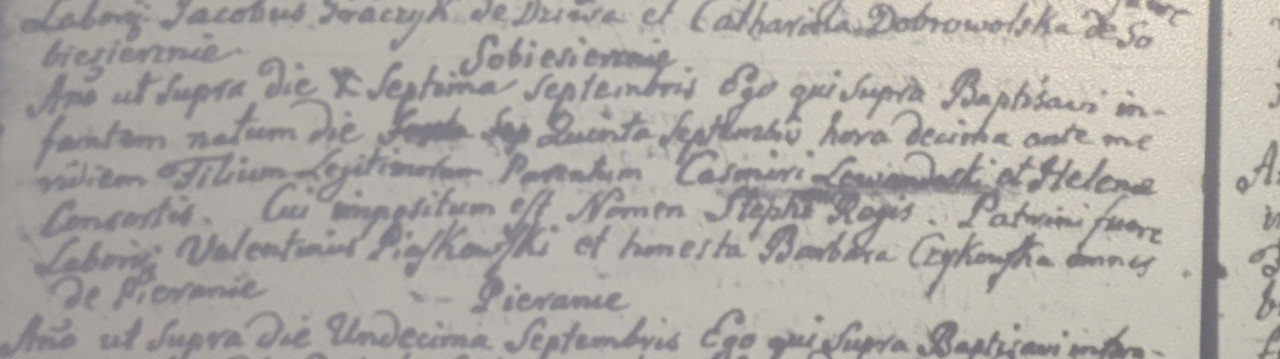 Labori Jacobus Traczyk de Dziwa et Catharina Dobrowolska de So
biesiernie. Sobiesiernie
Ano ut supra die Septima Septembris Ego qui supra Baptisavi in-
fantem natum die Quinta Septembris hora decima ante me
ridiem Filium Legitimorum Parentum Casimiri Lewandoski et Helenæ
Consortis. Cui impositum est Nomen Stephs Regis. Patrini fuere
Labori Valentinus Piaskowski et honesta Barbara Czykowska omnes
de Pieranie Pieranie
Ano ut supra die Undecima Septembris Ego qui supra Baptisavi infan-